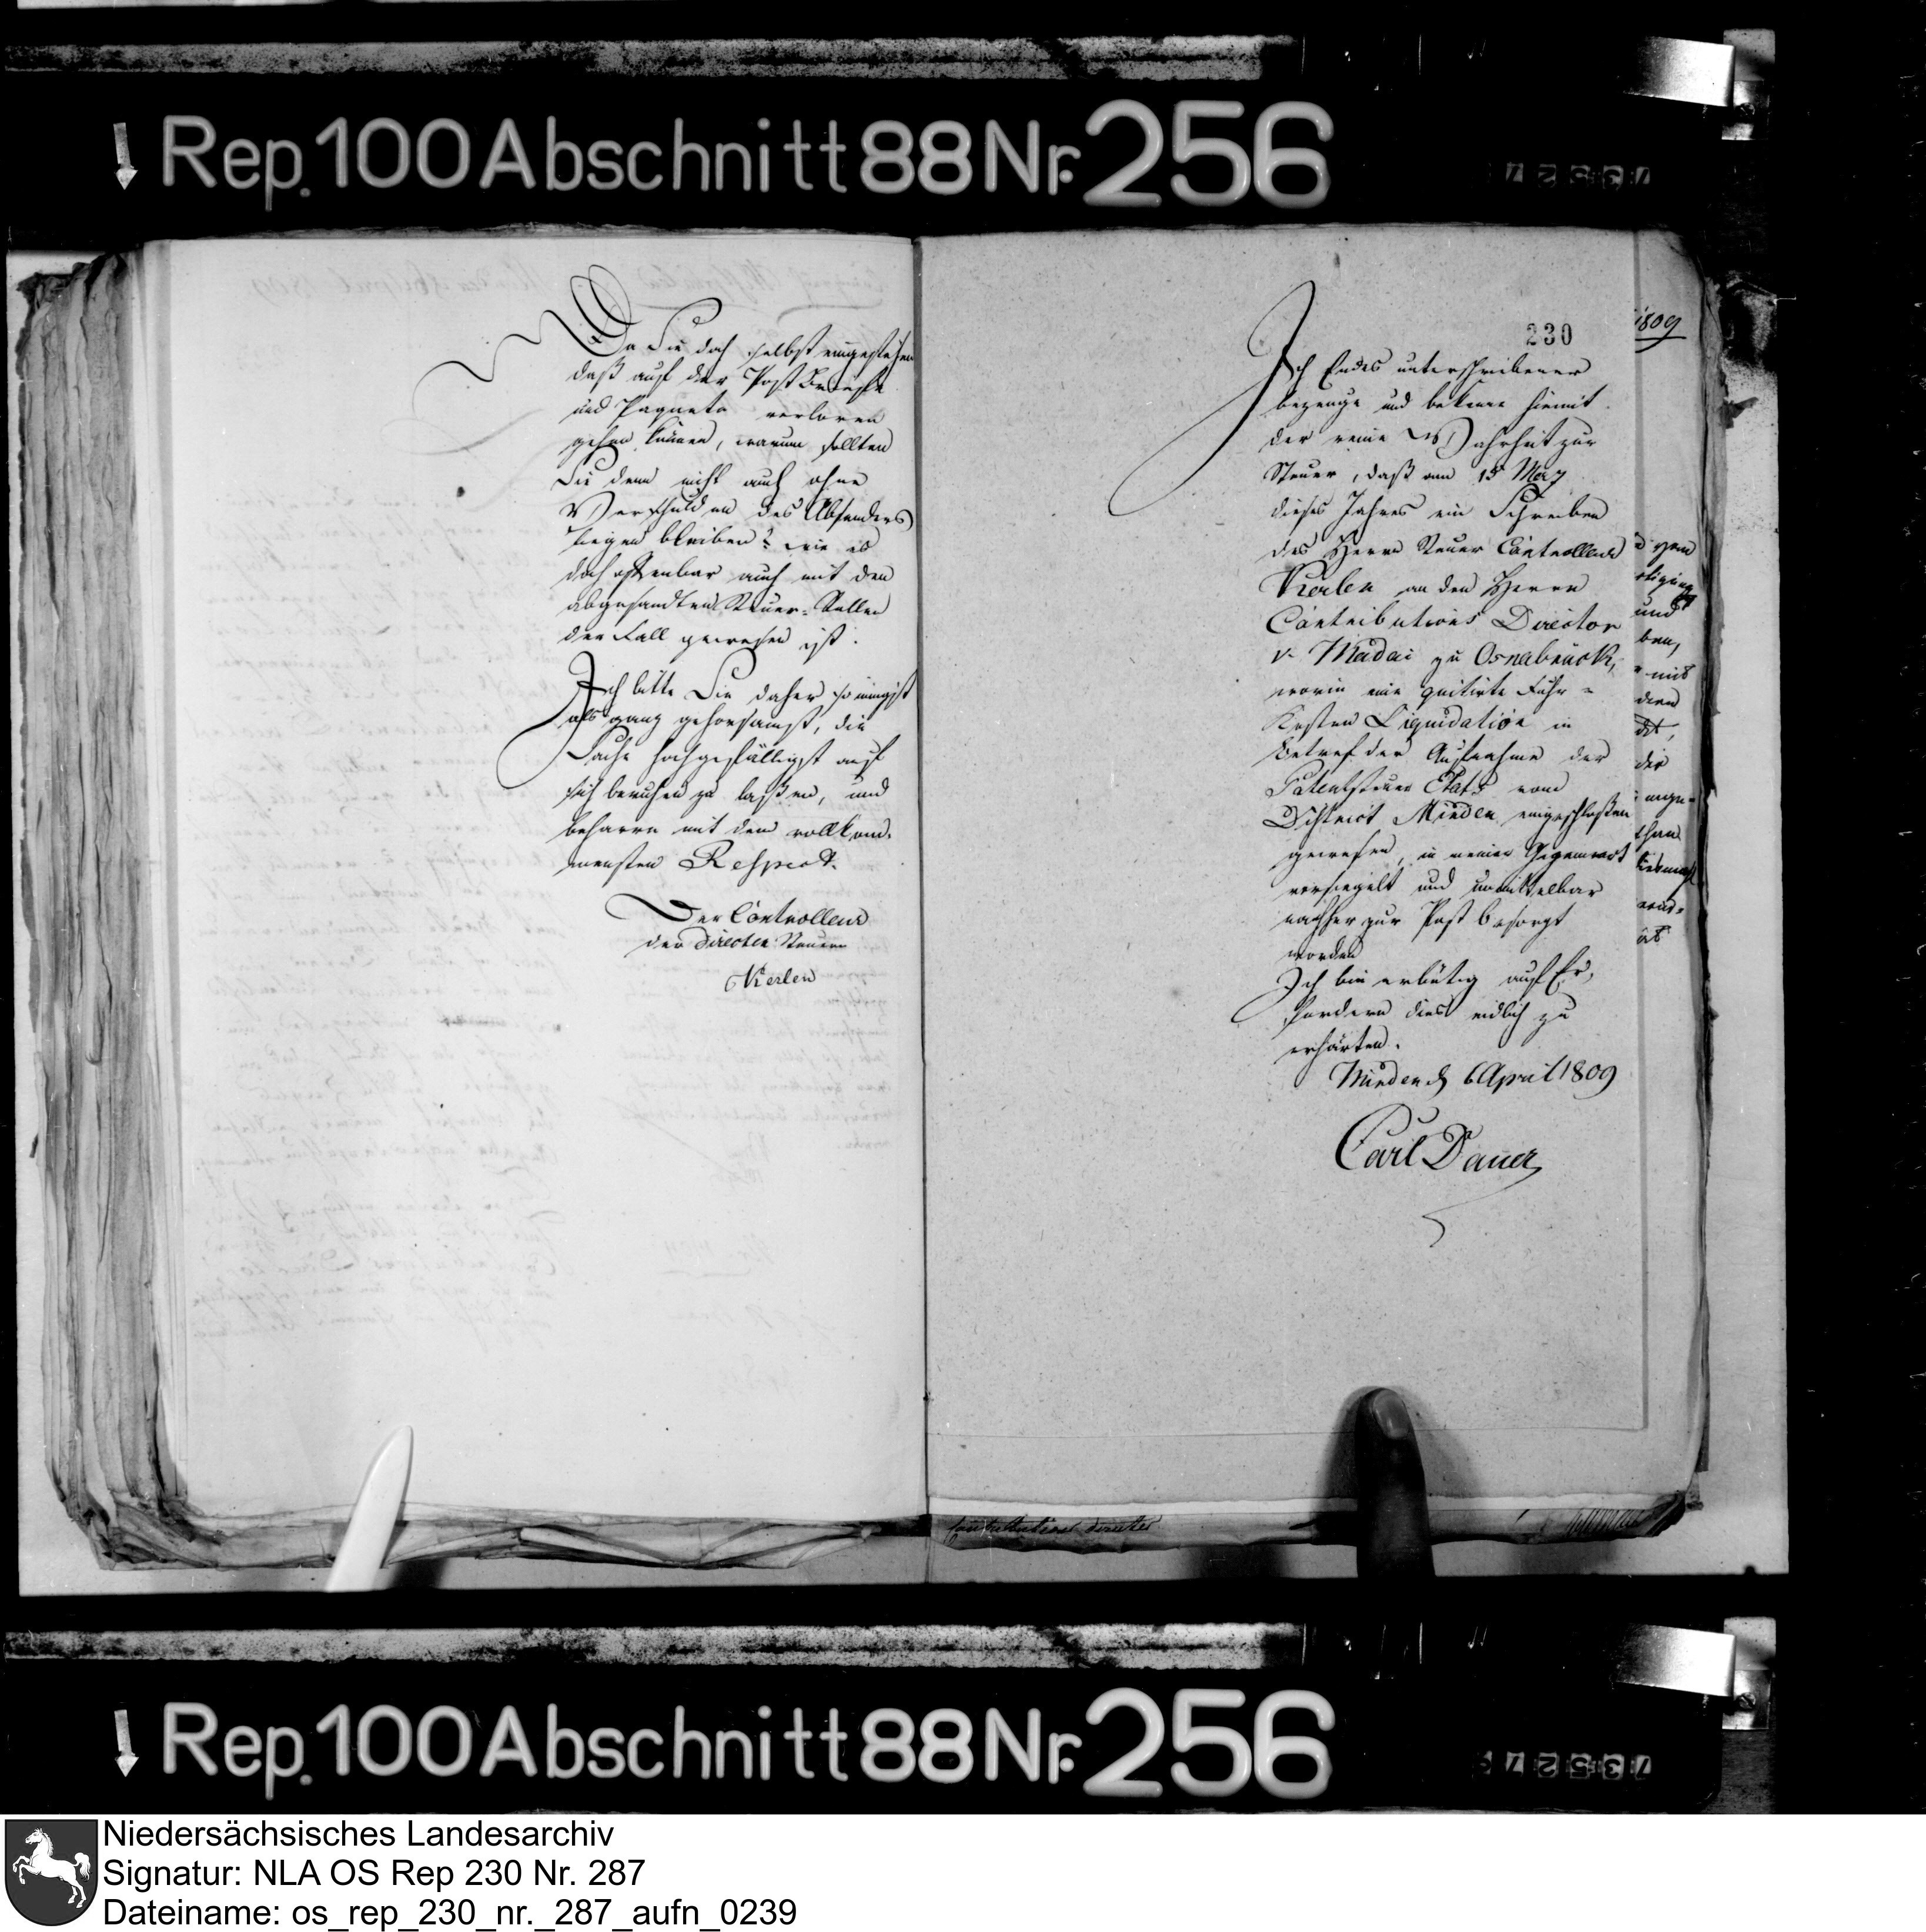 Rep. 100 Abschnitt 88 Nr. 256
Da Sie doch selbst eingestehen
daß auf der Post Briefe
und Paquete verloren
gehen können, warum sollten
Sie denn nicht auch ohne
Verschulden des Absenders
liegen bleiben? wie es
doch offenbar auch mit den
abgesandten Steuer-Rollen
der Fall gewesen ist.
Ich bitte Sie daher so innigst
als ganz gehorsamst, die
Sache hochgefälligst auf
sich beruhen zu laßen, und
beharre mit dem vollkom-
mensten Respect.
Der Controlleur
der directen Steuern
Kerlen
230
Ich Endes unterschriebener
bezeuge und bekenne hiemit
der reine Wahrheit zur
Steuer, daß am 15 Merz
dieses Jahres ein Schreiben
des Herrn Steuer Controlleur
Kerlen an den Herrn
Contributions Director
v. Madai zu Osnabrück,
worin eine quitirte Fuhr-
Kosten Liquidation in
Betref der Aufnahme der
Patentsteuer Etats vom
District Minden eingeschloßen
gewesen, in meiner Gegenwart
versiegelt und unmittelbar
nachher zur Post besorgt
worden
Ich bin erbötig auf Er-
fordern dies eidlich zu
erhärten.
Minden d 6 April 1809
Carl Dauer
1809
und
ben,
mit
die
Rep. 100 Abschnitt 88 Nr. 256
Niedersächsisches Landesarchiv
Signatur: NLA OS Rep 230 Nr. 287
Dateiname: os_rep_230_nr._287_aufn_0239